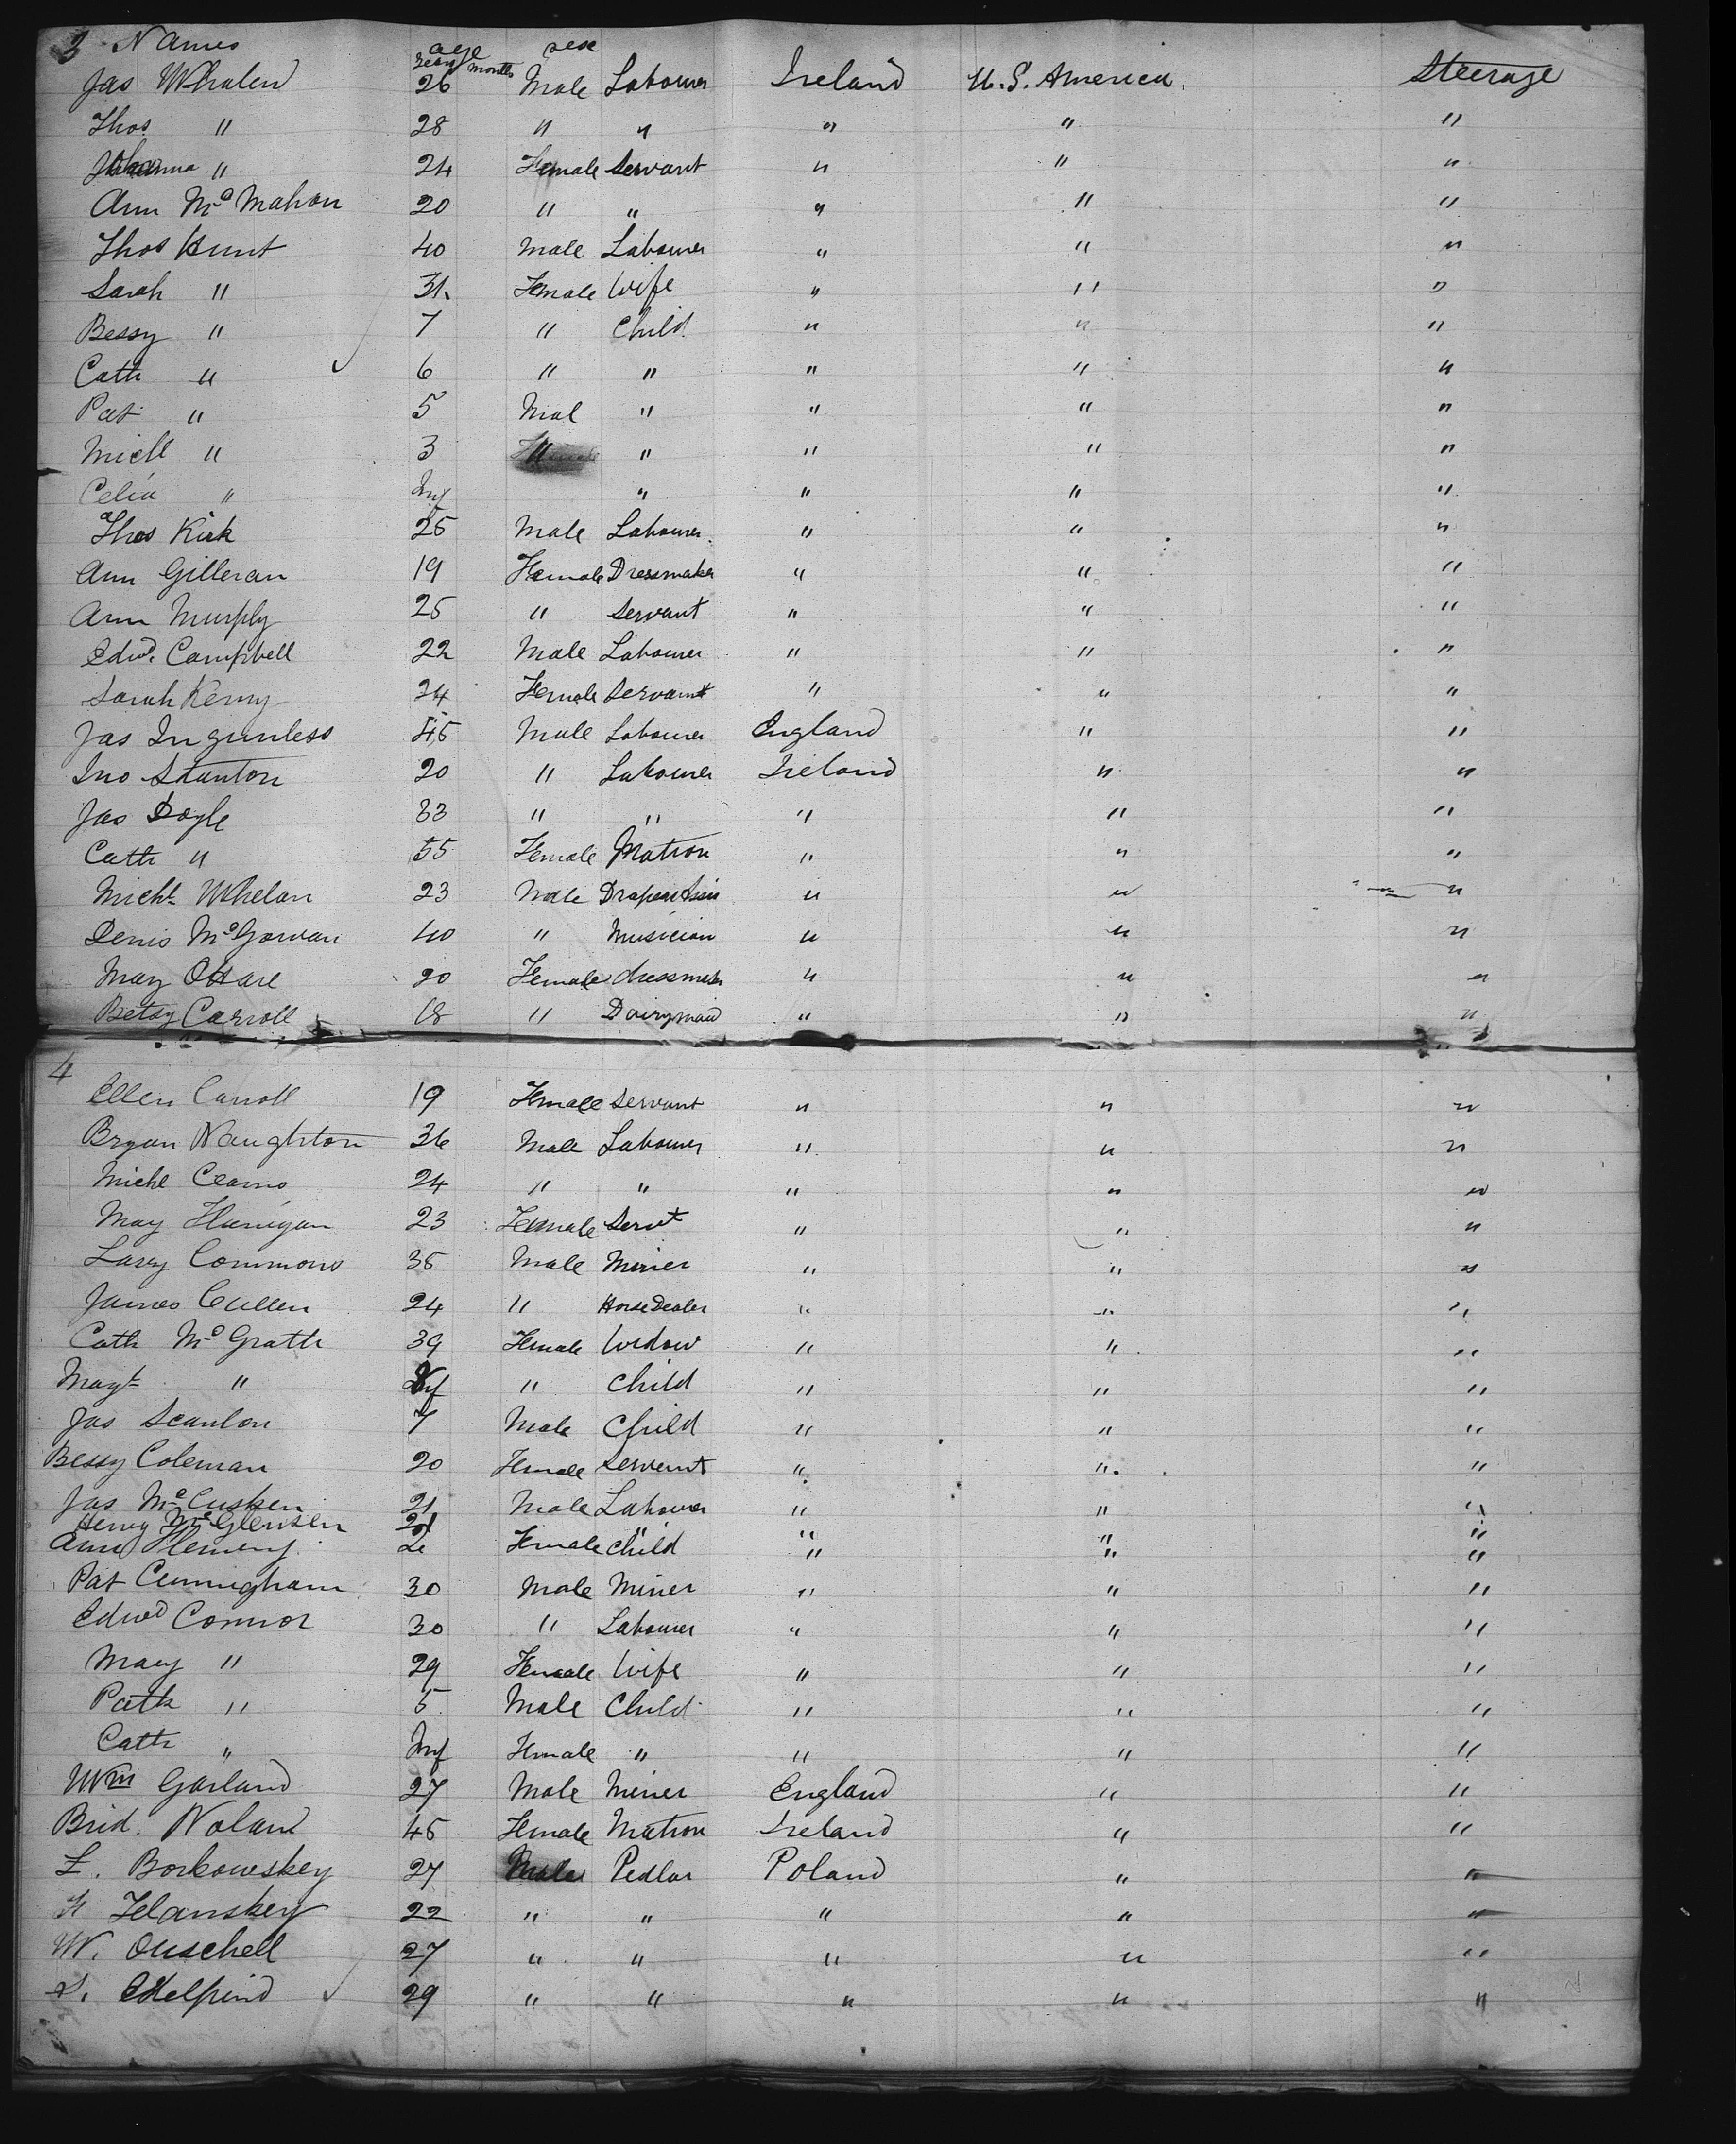 3 Names age sex
years months
Jas Whalen 26 Male Labourer Ireland U.S. America Steerage
Thos " 28 " " " " "
Johanna " 24 Female Servant " " "
Ann McMahon 20 " " " " "
Thos Hunt 40 Male Labourer " " "
Sarah " 31 Female Wife " " "
Bessy " 7 " Child " " "
Cath " 6 " " " " "
Pat " 5 Mal " " " "
Michl " 3 " " " " "
Celia " Inf " " " "
Thos Kirk 25 Male Labourer " " "
Ann Gilleran 19 Female Dressmaker " " "
Ann Murphy 25 " Servant " " "
Edwd. Campbell 22 Male Labourer " " "
Sarah Kenny 24 Female Servant " " "
Jas Ingunless 45 Male Labourer England " "
Jno Stanton 20 " Labourer Ireland " "
Jas Doyle 33 " " " " "
Cath " 55 Female Matron " " "
Michl Whelan 23 Male Draper Assis " " "
Denis McGowan 40 " Musician " " "
Mary OHare 20 Female dressmaker " " "
Betsy Carroll 18 " Dairymaid " " "
4
Ellen Carroll 19 Female Servant " " "
Bryan Naughton 36 Male Labourer " " "
Michl 24 " " " " "
Mary Flanigan 23 Female Servt " " "
Larry Commons 35 Male Miner " " "
James Cullen 24 " Horse Dealer " " "
Cath McGrath 39 Female Widow " " "
Magt " Inf " Child " " "
Jas Scanlon 7 Male Child " " "
Bessy Coleman 20 Female Servant " " "
Jas McCusken 21 Male Labourer " " "
Henry 21 " " " "
Ann Flemeny 2 Female Child " " "
Pat Cunnigham 30 Male Miner " " "
Edwd Connor 30 " Labourer " " "
Mary " 29 Female Wife " " "
Patk " 5 Male Child " " "
Cath " Inf Female " " " "
Wm Garland 27 Male Miner England " "
Brid. Nolan 45 Female Matron Ireland " "
L. Borkowskey 27 Male Pedlar Poland " "
Felanskey 22 " " " " "
W. Ouschell 27 " " " " "
S. Edelfind 29 " " " " "